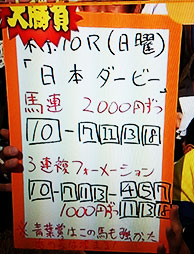 大勝負
東京10R(日曜)
「日本ダービー」
馬連 2000円ずつ
10-7 11 13 18
3連複フォーメーション
10-7 11 13-4 5 7
1000円ずつ 11 13 18
※青葉賞はこの馬も強かった